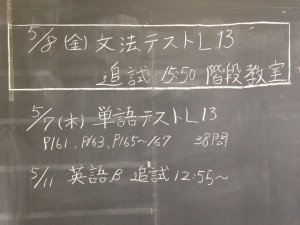 5/8(金) 文法テストL13
追試 15:50 階段教室
5/7(木) 単語テストL13
P161、P163、P165～167 38問
5/11 英語β 追試 12:55～